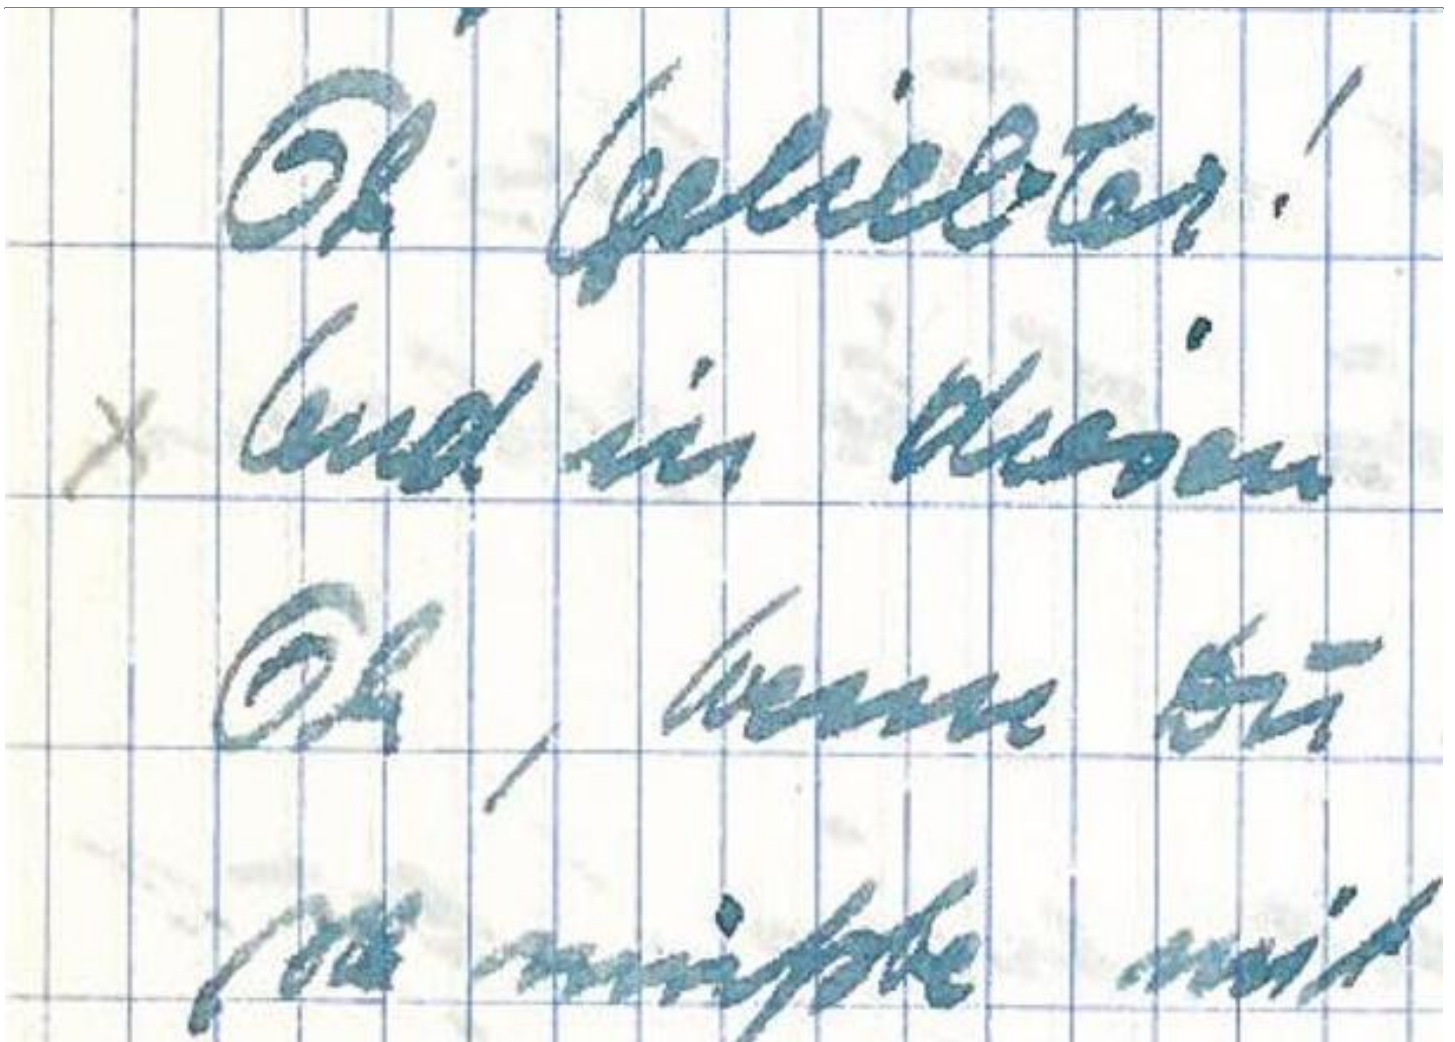 Oh Geliebter!
Und in diesen
Oh, wenn Du
Ich müßte mit